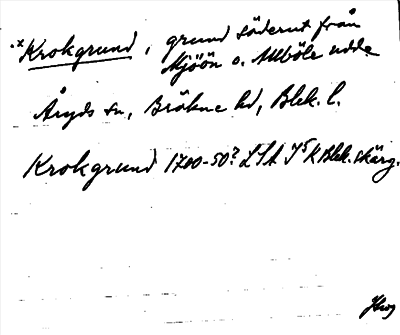 .x Krokgrund, grund söderut från
Mjöön o. Allböle udde
Åryds sn, Bräkne hd, Blek. l.
Krokgrund 1700-50? LSA I5 K Blek. skärg.